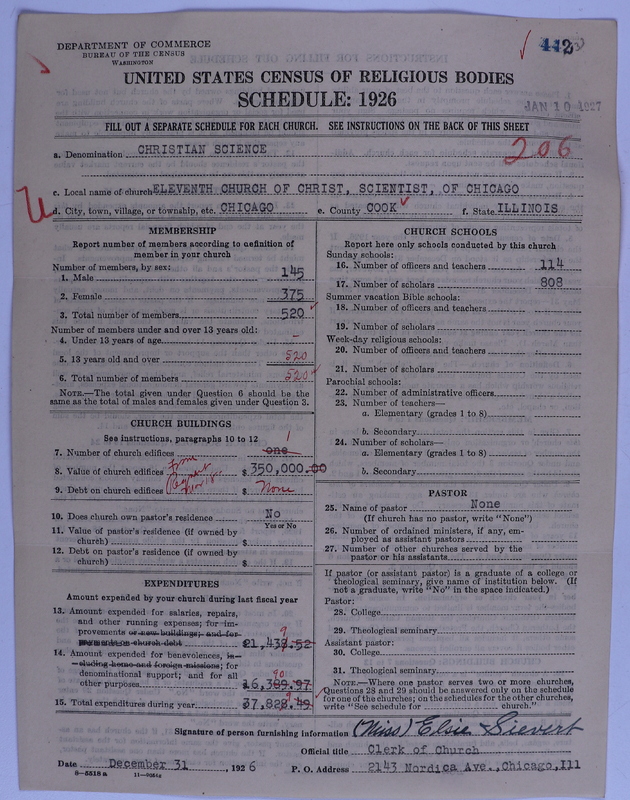 DEPARTMENT OF COMMERCE
BUREAU OF THE CENSUS
WASHINGTON
442
UNITED STATES CENSUS OF RELIGIOUS BODIES
SCHEDULE: 1926
JAN 10 1927
FILL OUT A SEPARATE SCHEDULE FOR EACH CHURCH. SEE INSTRUCTIONS ON THE BACK OF THIS SHEET
a. Denomination CHRISTIAN SCIENCE
206
c. Local name of church ELEVENTH CHURCH OF CHRIST, SCIENTIST, OF CHICAGO
U
d. City, town, village, or township, etc. CHICAGO e. County COOK f. State ILLINOIS
MEMBERSHIP
Report number of members according to definition of
member in your church
Number of members, by sex:
1. Male 145
2. Female 375
3. Total number of members 520
Number of members under and over 13 years old:
4. Under 13 years of age -
5. 13 years old and over 520
6. Total number of members 520
NOTE.—The total given under Question 6 should be
same as the total of males and females given under Question 3.
CHURCH BUILDINGS
See instructions, paragraphs 10 to 12
7. Number of church edifices one 1
8. Value of church edifices $350,000.00
9. Debt on church edifices $ None
10. Does church own pastor's residence No
Yes or No
11. Value of pastor's residence (if owned by
church) $
12. Debt on pastor's residence (if owned by
church) $
EXPENDITURES
Amount expended by your church during last fiscal year
13. Amount expended for salaries, repairs,
and other running expenses; for im-
provements or new buildings; and for
payments on church debt 21,438.52 9
14. Amount expended for benevolences, in-
cluding home and foreign missions; for
denominational support; and for all
other purposes 16,389.97 90
15. Total expenditures during year 37,828.49 9
CHURCH SCHOOLS
Report here only schools conducted by this church
Sunday schools:
16. Number of officers and teachers 114
17. Number of scholars 808
Summer vacation Bible schools:
18. Number of officers and teachers
19. Number of scholars
Week-day religious schools:
20. Number of officers and teachers
21. Number of scholars
Parochial schools:
22. Number of administrative officers
23. Number of teachers—
a. Elementary (grades 1 to 8)
b. Secondary
24. Number of scholars—
a. Elementary (grades 1 to 8)
b. Secondary
PASTOR
25. Name of pastor None
(If church has no pastor, write "None")
26. Number of ordained ministers, if any, em-
ployed as assistant pastors
27. Number of other churches served by the
pastor or his assistants
If pastor (or assistant pastor) is a graduate of a college or
theological seminary, give name of institution below. (If
not a graduate, write "No" in the space indicated.)
Pastor:
28. College
29. Theological seminary
Assistant pastor:
30. College
31. Theological seminary
NOTE.—Where one pastor serves two or more churches,
Questions 28 and 29 should be answered only on the schedule
for one of the churches; on the schedules for the other churches,
write "See schedule for church."
Signature of person furnishing information (Miss) Elsie Sievert
Official title Clerk of Church
Date December 31, 1926 P. O. Address 2143 Nordica Ave., Chicago, Ill
8—5518 a 11—9054a